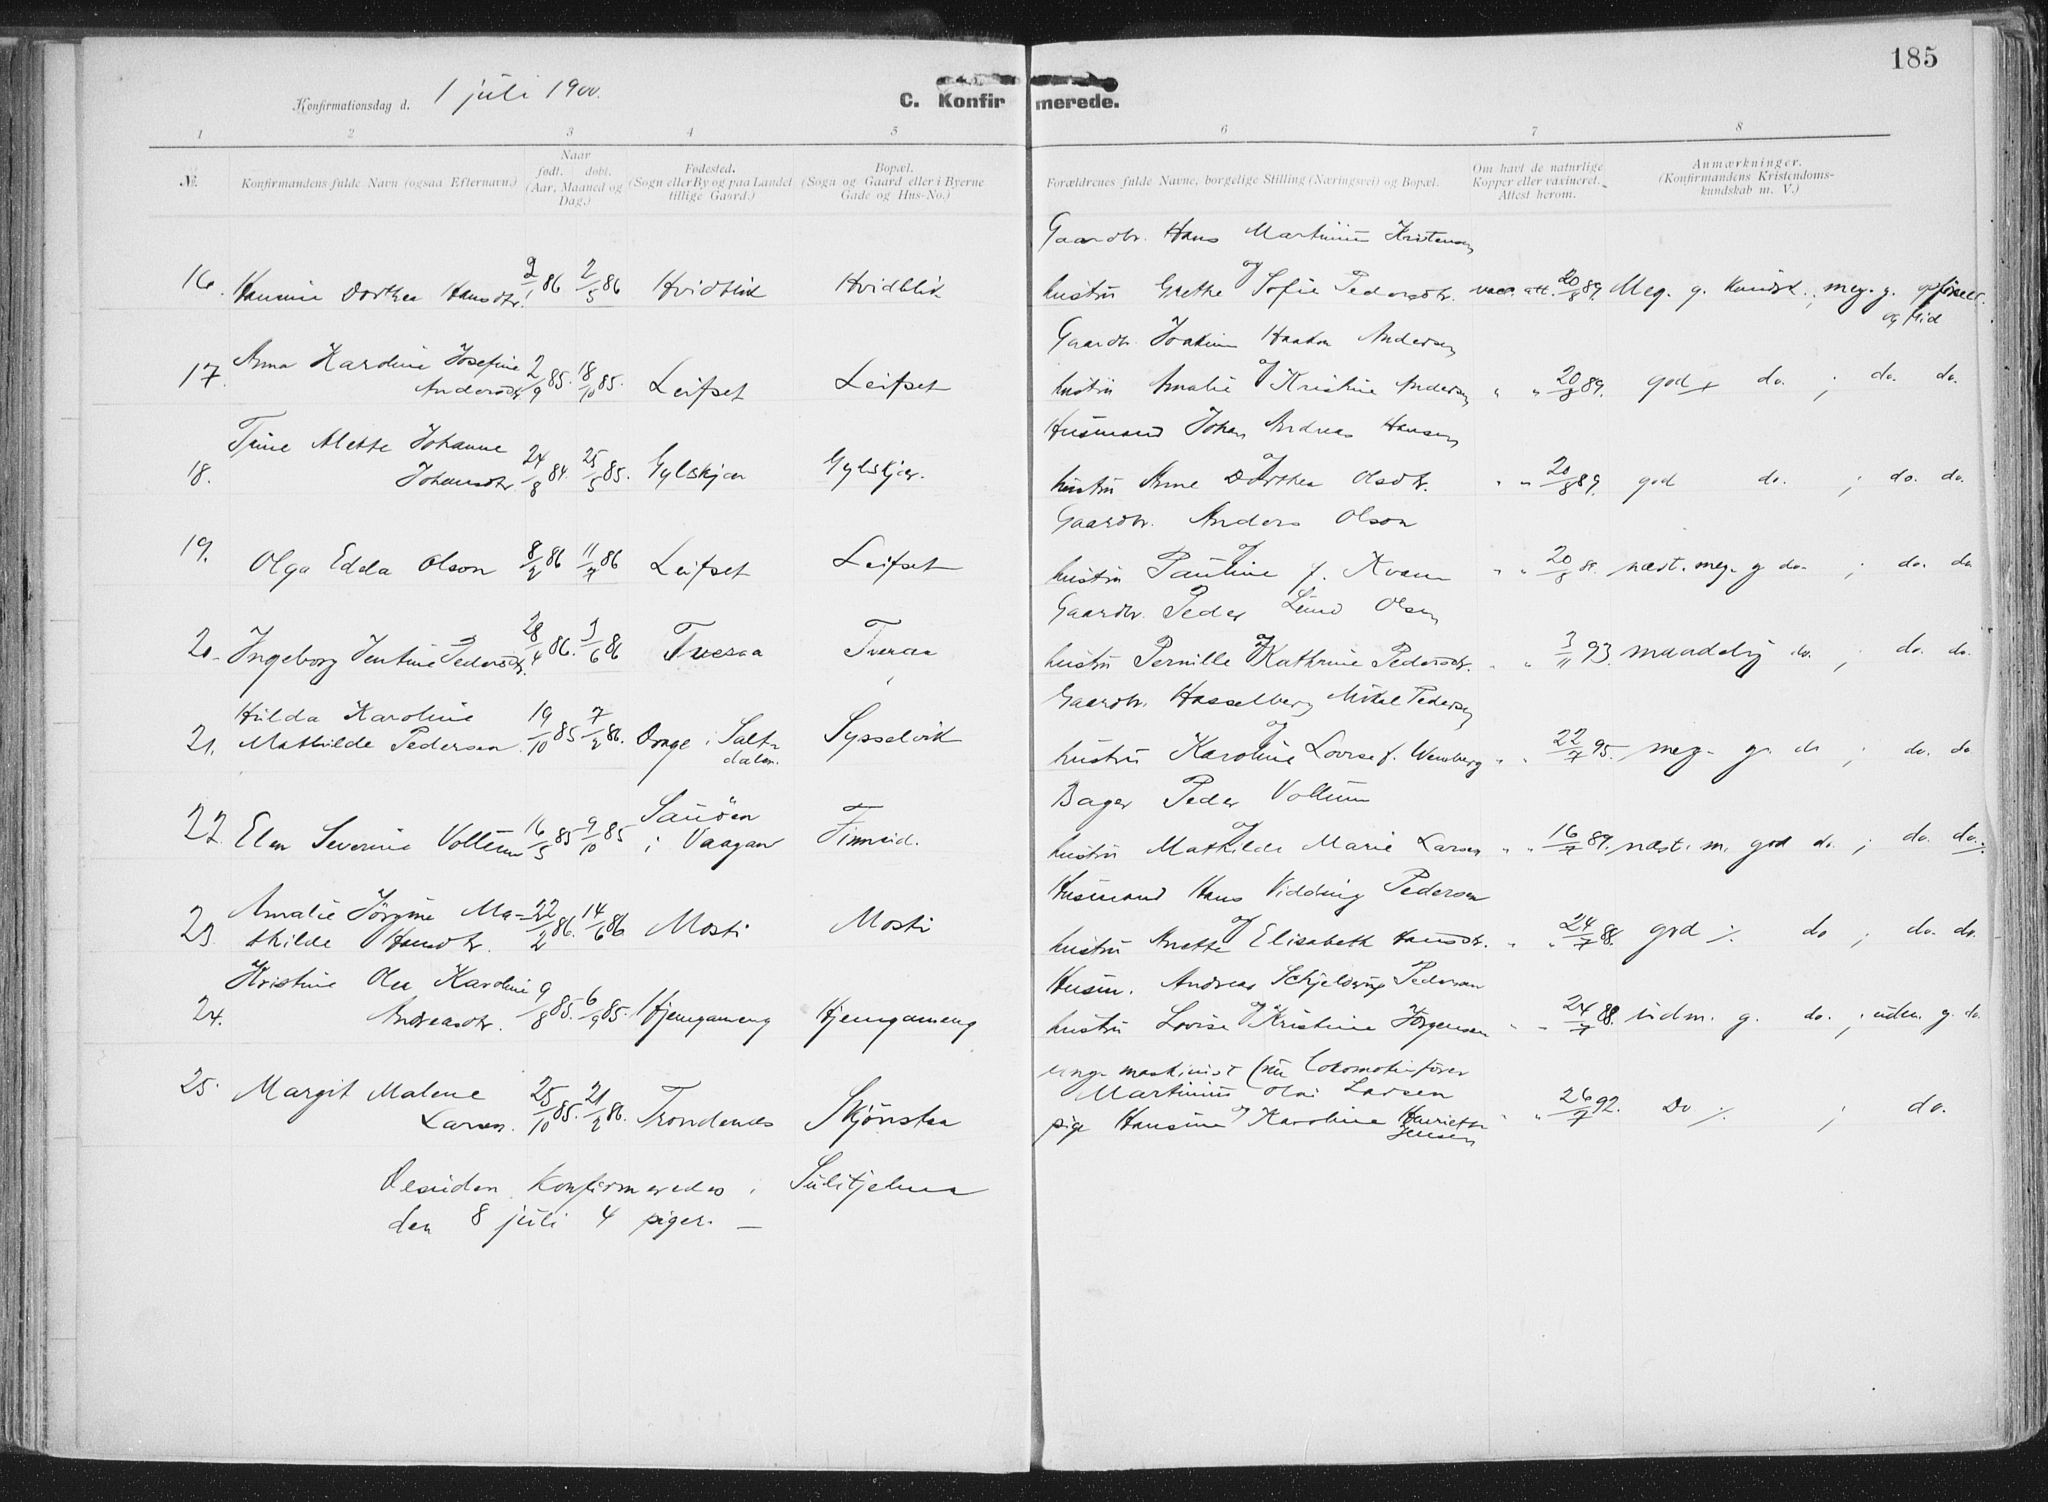 185
Konfirmationsdag d. 1 juli 1900.
C. Konfirmerede.
1 2 3 4 5 6 7 8
№.
Konfirmandens fulde Navn (ogsaa Efternavn.)
Naar
født. døbt.
(Aar, Maaned og
Dag.)
Fødested.
(Sogn eller By og paa Landet
tillige Gaard.)
Bopæl.
(Sogn og Gaard eller i Byerne
Gade og Hus-No.)
Forældrenes fulde Navne, borgelige Stilling (Næringsvei) og Bopæl.
Om havt de naturlige
Kopper eller vaxineret.
Attest herom.
Anmærkninger.
(Konfirmandens Kristendoms-
kundskab m. V.)
Gaardbr. Hans Martinius Kristensen
og
16. Hansine Dorthea Hansdtr. 2/1 86 2/5 86 Hvidblik Hvidblik hustru Grethe Sofie Pedersdtr. vacc. att. 20/8 89. Meg. g. kundsk.; meg. g. opførsel
og flid
Gaardbr. Joakim Haakon Andersen
og
17. Anna Kardine Josefine
Andersdtr. 2/9 85. 18/10 85. Leifset Leifset hustru Amalie Kristine Andersen " " 20/8 89. god do. ; do. do.
Husmand Johan Andreas Hansen
og
18. Trine Alette Johanne
Johansdtr. 24/8 84. 25/5 85. Gylskjær Gylskjær. hustru Anne Dorthea Olsdtr. " " 20/8 89. god do. ; do. do.
Gaardbr. Anders Olson
og
19. Olga Edda Olson 8/2 86 11/7 86 Leifset Leifset hustru Pauline f. Kvam " " 20/8 næst. meg. g. do. ; do. do
Gaardbr. Peder Lund Olsen
og
20. Ingeborg Jentine Pedersdtr. 28/4 86. 3/6 86 Tveraa Tveraa hustru Pernille Kathrine Pedersdtr. " " 3/11 93. maadelig do. ; do. do.
Gaardbr. Hasselberg Mikal Pedersen
og
21. Hilda Karoline
Mathilde Pedersen. 19/10 85 7/2 86. Drage i Salt-
dalen. Sysselvik hustru Karoline Lovise f. Wenberg " " 22/7 95. meg. g. do ; do. do
Bager Peder Vollum
og
22. Elen Severine Vollum 16/5 85 9/10 85 Sauöen
i Vaagan Finneid. hustru Mathilde Marie Larsen " " 16/7 89. næst. m. god do. ; do. do.
Husmand Hans Vidding Pedersen
og
23. Amalie Jörgine Ma-
thilde Hansdtr. 22/2 86. 14/6 86. Mosti Mosti hustru Anette Elisabeth Hansdtr. " " 24/7 88. god ./. do ; do. do.
Husm. Andreas Schjelderup Pedersen
og
24. Kristine Olea Kardine
Andreasdtr. 9/8 85. 6/9 85. Hjemgameng Hjemgameng hustru Lovise Kristine Jörgensen " " 24/7 88. udm. g. do. ; udm. g. do
ung. maskinist (nu Lokomotivförer
Martinius Olai Larsen
og
25. Margit Malene
Larsen. 25/10 85. 21/2 86. Trondenes Skjönstaa pige Hansine Karoline Henriette
Jensen " " 26/7 92. Do ./. ; do.
Desuden konfirmeredes i Sulitjelma
den 8 juli 4 piger. —